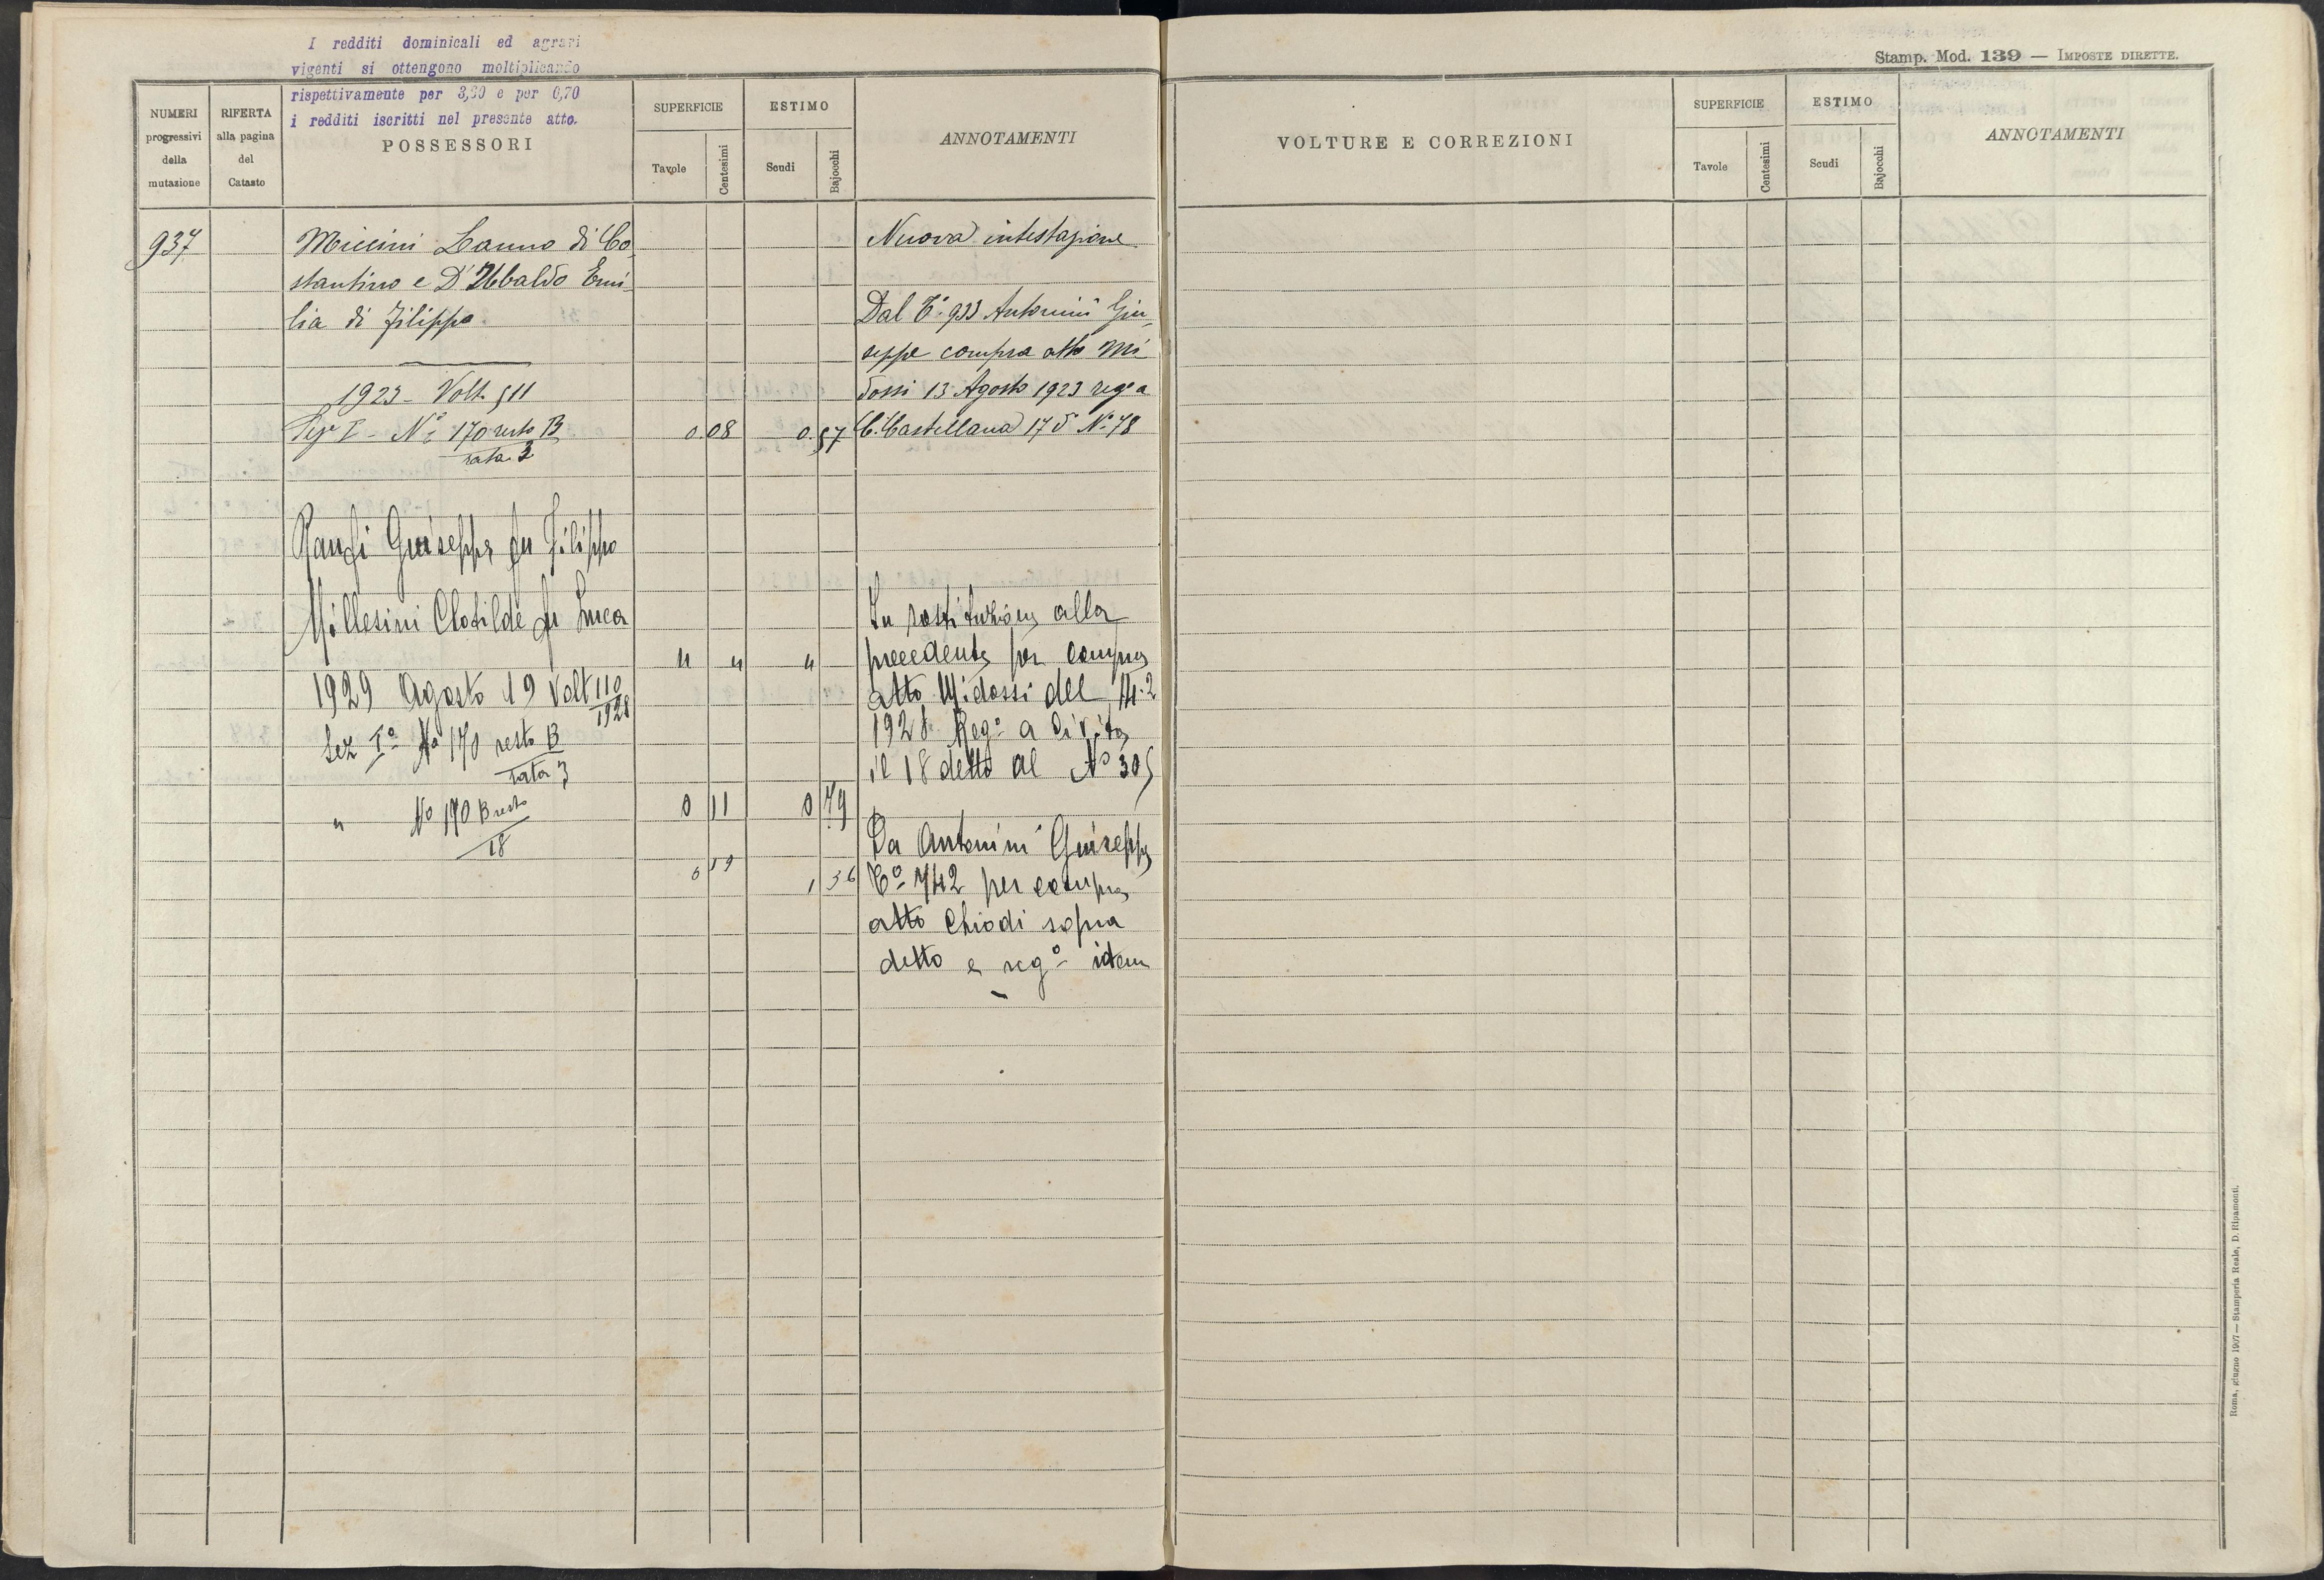 I redditi dominicali ed agrari
vigenti si ottengono moltiplicando
rispettivamente per 3,30 e per 0,70
i redditi iscritti nel presente atto.
Stamp. Mod. 139 — IMPOSTE DIRETTE.
NUMERI progressivi della mutazione
RIFERTA alla pagina del Catasto
POSSESSORI
SUPERFICIE
Tavole
Centesimi
ESTIMO
Scudi
Bajocchi
ANNOTAMENTI
VOLTURE E CORREZIONI
SUPERFICIE
Tavole
Centesimi
ESTIMO
Scudi
Bajocchi
ANNOTAMENTI
937
Miccini di Co
stantino e D'Ubaldo Emi
lia di Filippo
1923 - Volt. 511
Sez. I - N. 170 resto B
rata 3
0.08 0.57
Nuova intestazione
Dal C. 933 Antonini Giu
seppe compra atto Mi
dossi 13 Agosto 1923 reg.o a
C. Castellana 17 d.o N. 78
Ranfi Giuseppe fu Filippo
Millesini Clotilde fu Luca
" " "
1929 Agosto 19 Volt 110
1928
Sez I.o No 170 resto B
rata 3
" No 170 B resto
18
0 11 0 79
0 19 1 36
In sostituzione alla
precedente per compra
atto Midossi del 14.2
1928 Reg.o a Civita
il 18 detto al No 305
Da Antonini Giuseppe
C.o 742 per compra
atto Chiodi sopra
detto e reg.o idem
Roma, giugno 1907 — Stamperia Reale, D. Ripamonti.